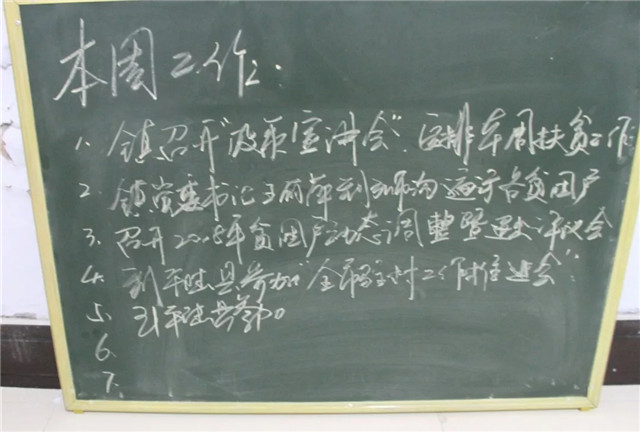 本周工作:
1、镇召开"政策宣讲会",安排本周扶贫工作
2、镇党委书记王丽萍到 沟遍访各贫困户
3、召开2018年贫困户动态调整暨退出评议会
4、到平 县参加"全县驻村工作推进会"。
5、到平 县 。
6、
7、